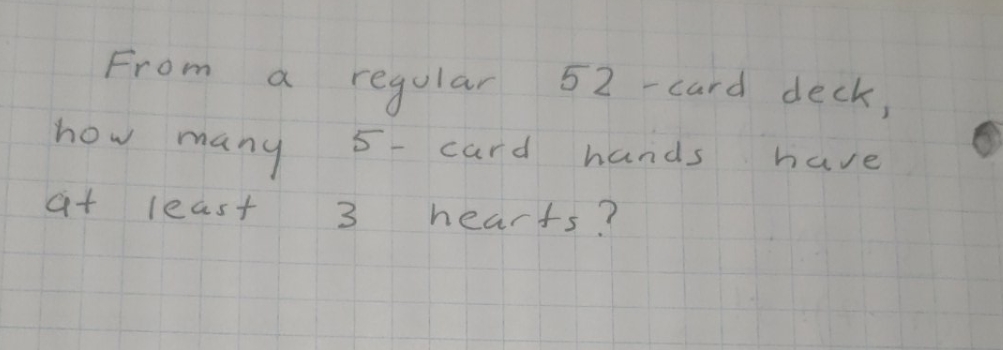 From a regular 52-card deck,
how many 5-card hands have
at least 3 hearts?